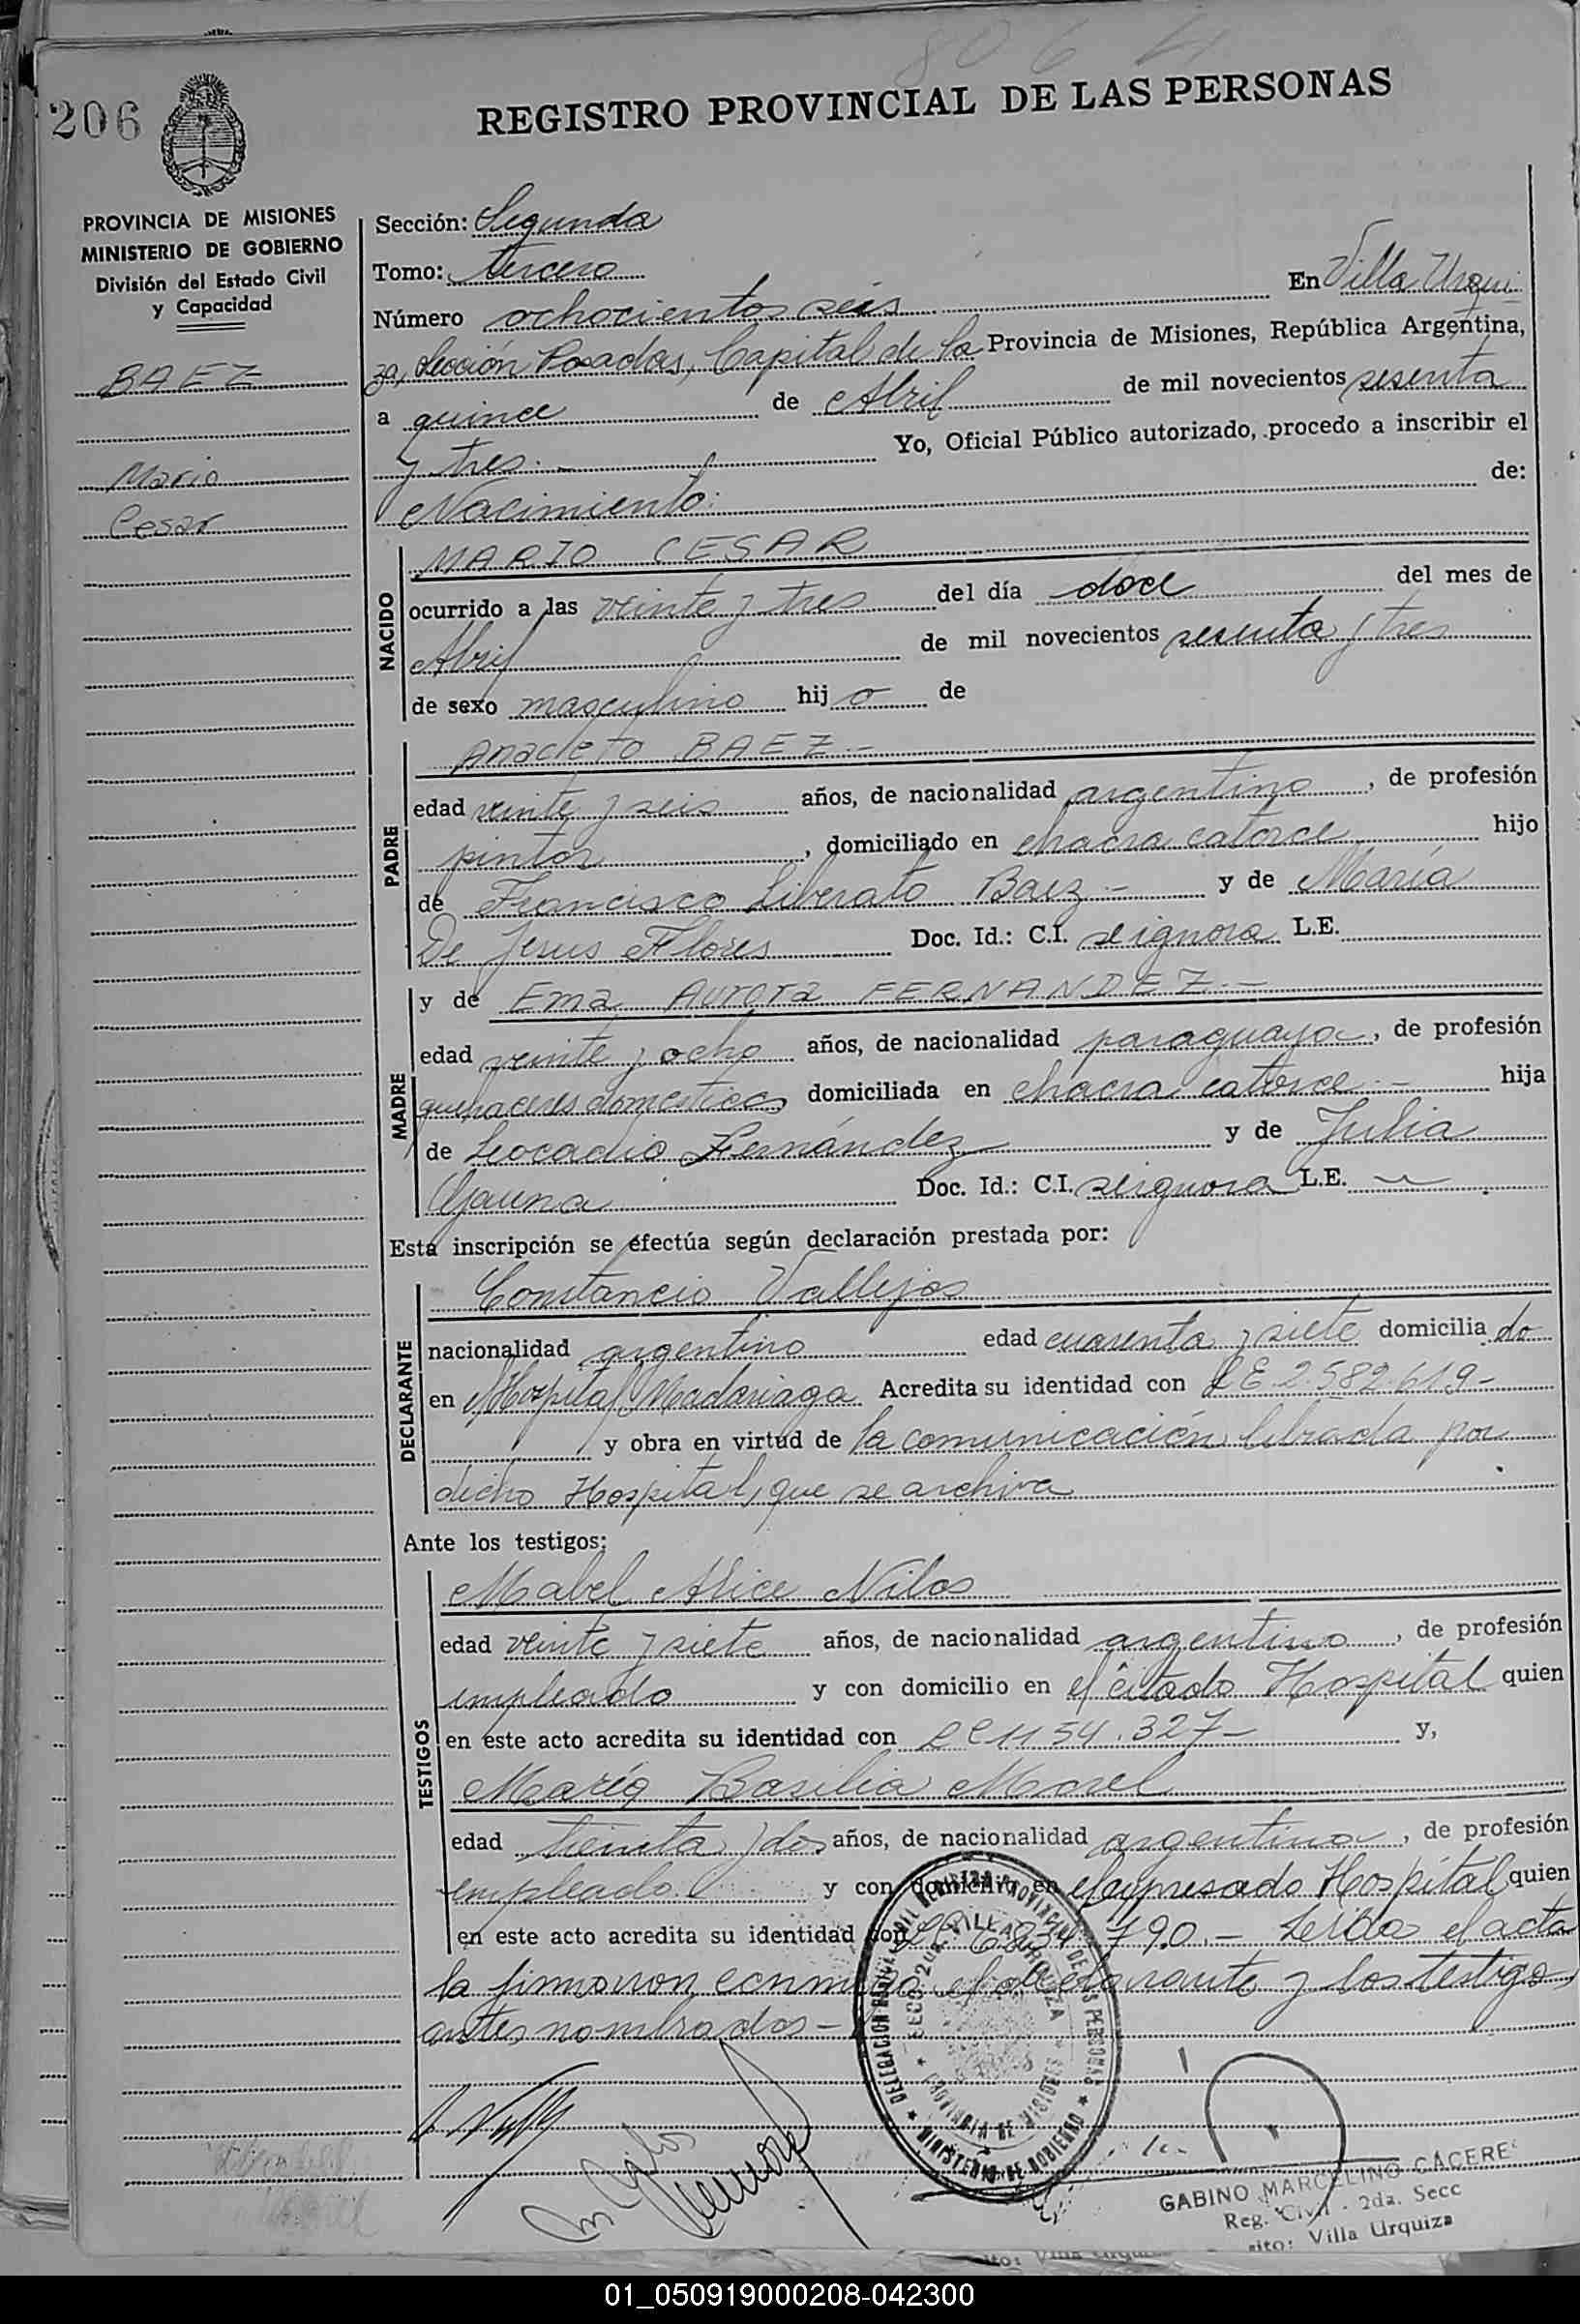 206
REGISTRO PROVINCIAL DE LAS PERSONAS
PROVINCIA DE MISIONES
MINISTERIO DE GOBIERNO
División del Estado Civil
y Capacidad
BAEZ
Mario
Cesar
Sección: Segunda
Tomo: tercero
Número ochocientos seis En Villa Urqui
za, Sección Posadas, Capital de la Provincia de Misiones, República Argentina,
a quince de Abril de mil novecientos sesenta
y tres.- Yo, Oficial Público autorizado, procedo a inscribir el
Nacimiento: de:
NACIDO
MARIO CESAR
ocurrido a las veinte y tres del día doce del mes de
Abril de mil novecientos sesenta y tres
de sexo masculino hijo de
PADRE
Anacleto BAEZ.-
edad veinte y seis años, de nacionalidad argentino, de profesión
pintor, domiciliado en chacra catorce hijo
de Francisco Liberato Baez- y de María
De Jesus Flores Doc. Id.: C.I. se ignora L.E.
MADRE
y de Ema Aurora FERNANDEZ.-
edad veinte y ocho años, de nacionalidad paraguaya, de profesión
quehaceres domesticos domiciliada en chacra catorce.- hija
de Leocadio Fernández y de Julia
Gauna Doc. Id.: C.I. se ignora L.E.
Esta inscripción se efectúa según declaración prestada por:
DECLARANTE
Constancio Vallejos
nacionalidad argentino edad cuarenta y siete domiciliado
en Hospital Madariaga Acredita su identidad con LE 2.582.619-
y obra en virtud de la comunicación librada por
dicho Hospital, que se archiva
Ante los testigos:
TESTIGOS
Mabel Alice Nilos
edad veinte y siete años, de nacionalidad argentino, de profesión
empleado y con domicilio en el citado Hospital quien
en este acto acredita su identidad con LC 1154.327- y,
María Basilia Morel
edad treinta y dos años, de nacionalidad argentina, de profesión
empleado y con domicilio en el expresado Hospital quien
en este acto acredita su identidad con 790.- Leida el acta
la firmaron conmigo el declarante y los testigos
antes nombrados-
SECC. 2da. VILLA URQUIZA
PROVINCIA DE MISIONES
MINISTERIO DE GOBIERNO
GABINO MARCELINO CACERE
Reg. Civil - 2da. Secc
Villa Urquiza
01_050919000208-042300